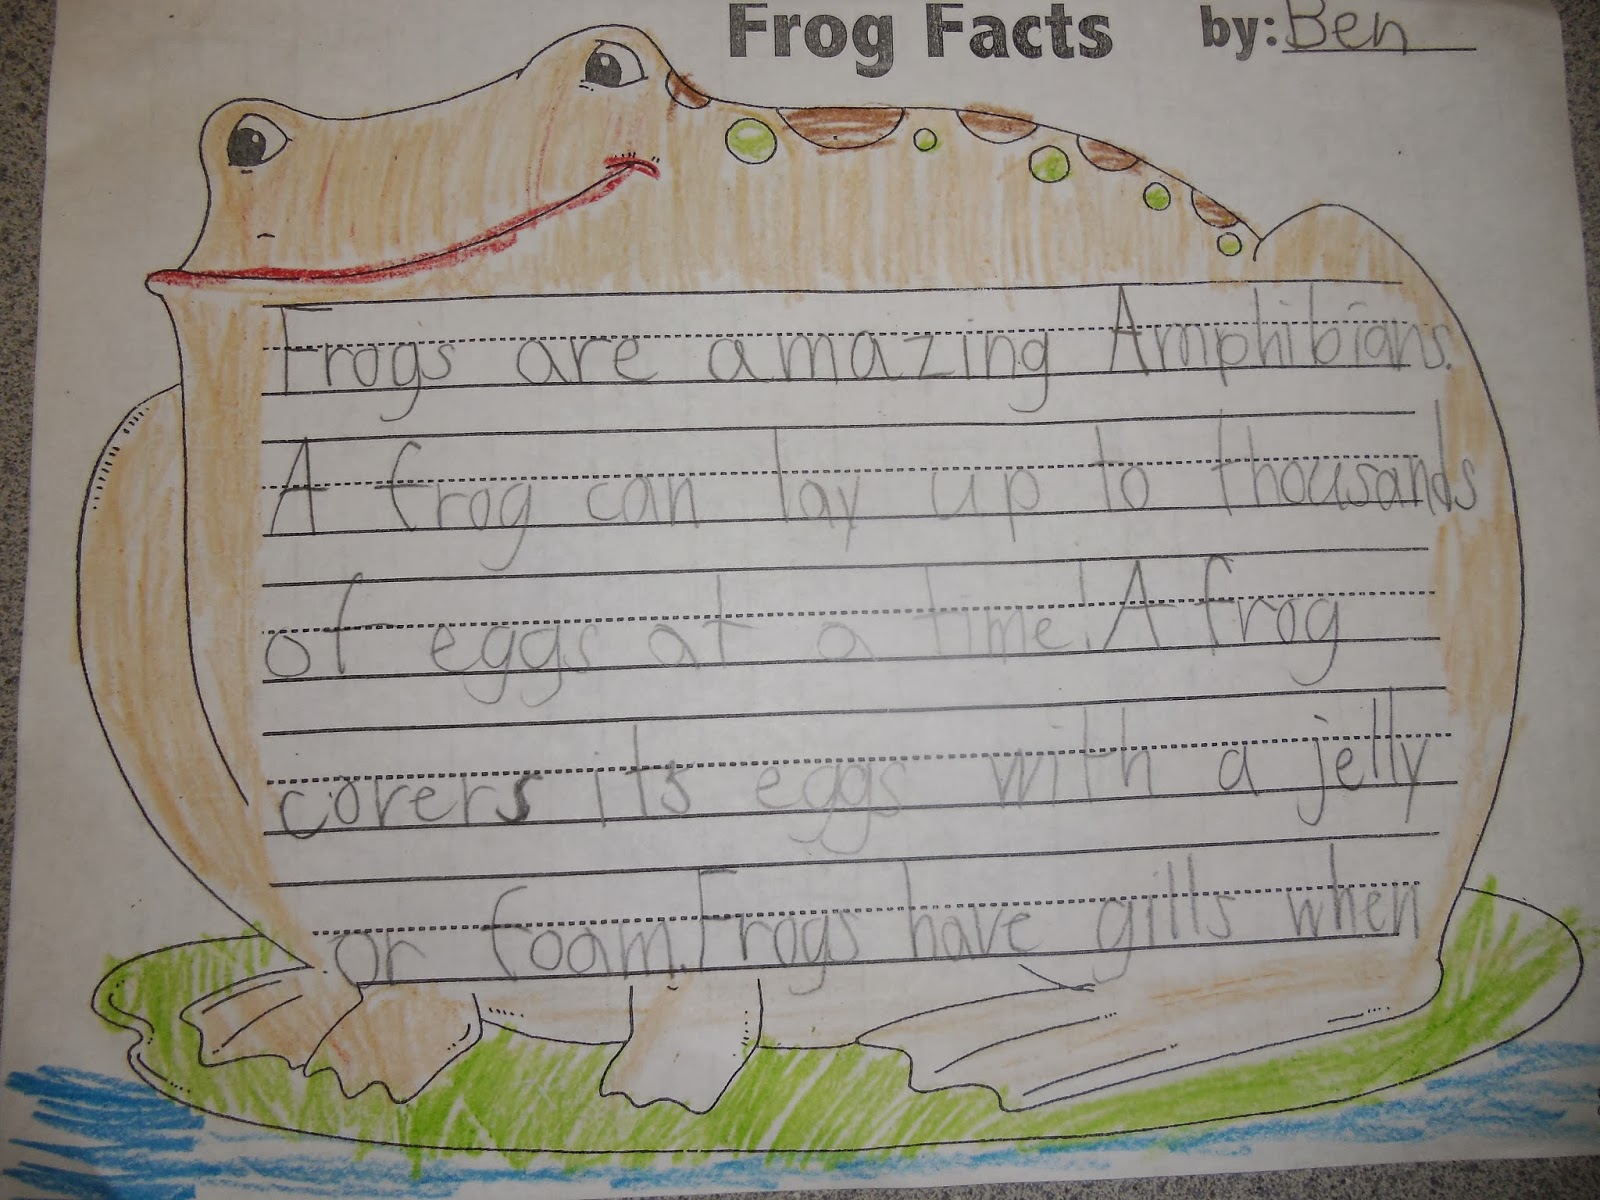 Frog Facts by: Ben
Frogs are amazing Amphibians.
A frog can lay up to thousands
of eggs at a time! A frog
covers its eggs with a jelly
or foam. Frogs have gills when